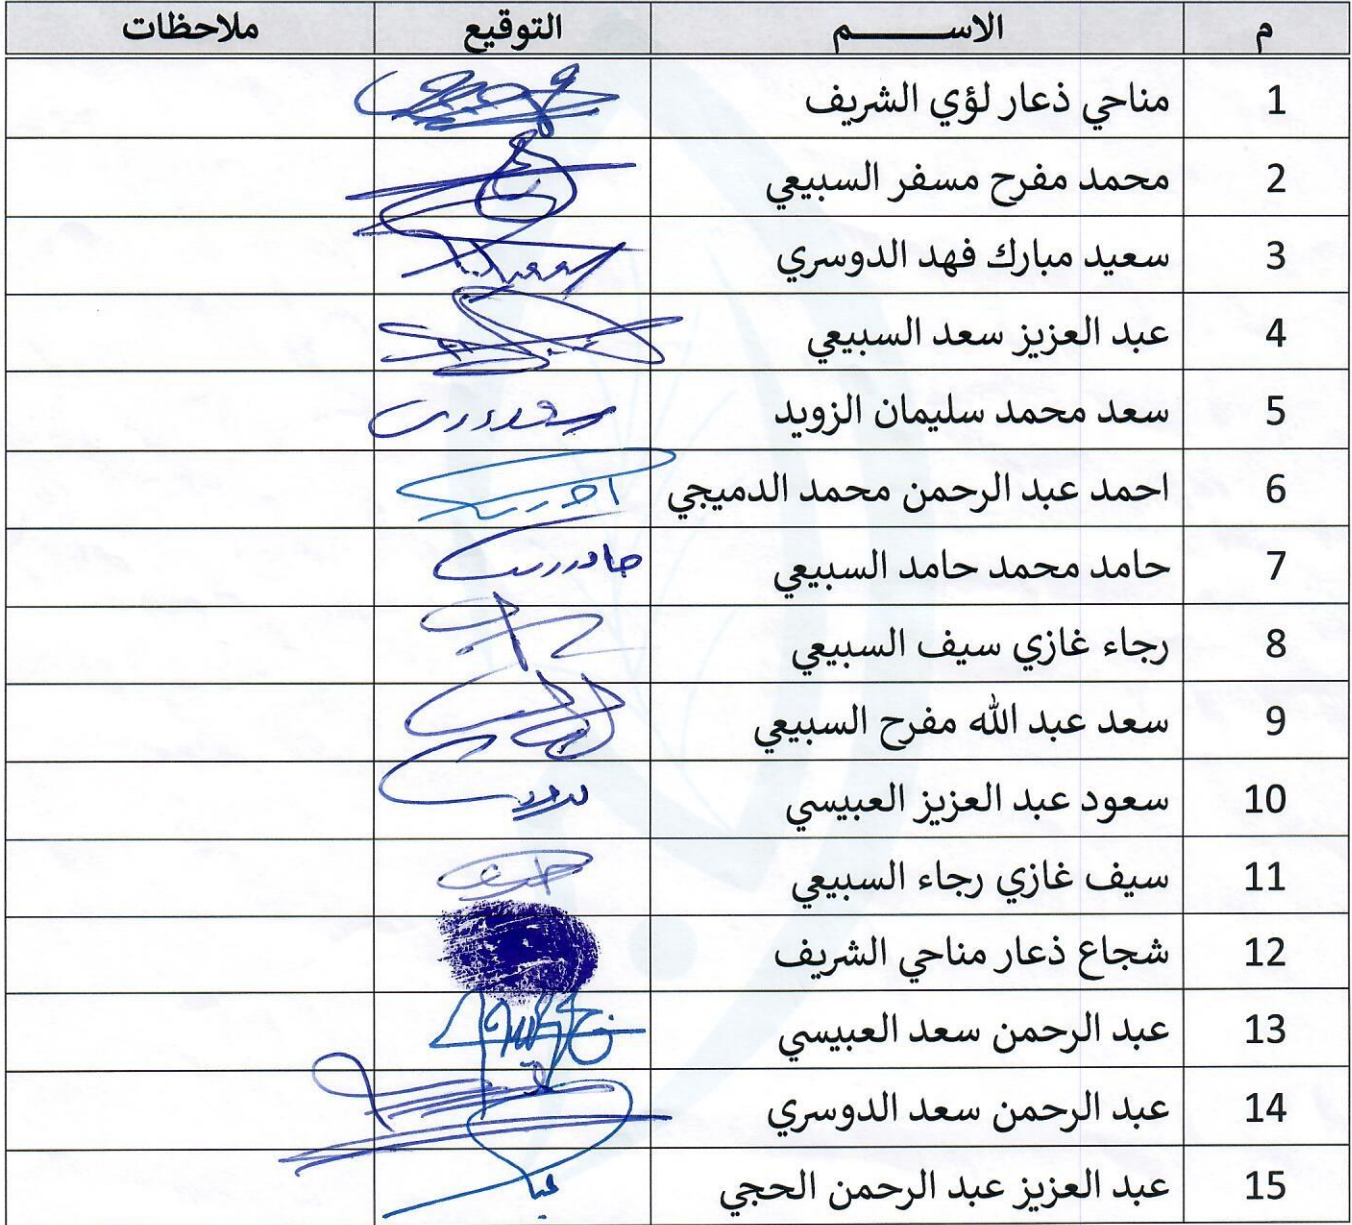 م الاســـــــم التوقيع ملاحظات
1 مناحي ذعار لؤي الشريف
2 محمد مفرح مسفر السبيعي
3 سعيد مبارك فهد الدوسري
4 عبد العزيز سعد السبيعي
5 سعد محمد سليمان الزويد
6 احمد عبد الرحمن محمد الدميجي
7 حامد محمد حامد السبيعي
8 رجاء غازي سيف السبيعي
9 سعد عبد الله مفرح السبيعي
10 سعود عبد العزيز العبيسي
11 سيف غازي رجاء السبيعي
12 شجاع ذعار مناحي الشريف
13 عبد الرحمن سعد العبيسي
14 عبد الرحمن سعد الدوسري
15 عبد العزيز عبد الرحمن الحجي